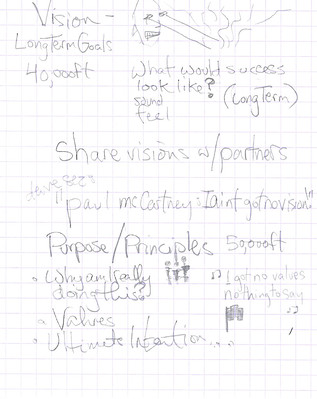 Vision -
Long Term Goals
40,000ft
What would success
look like? (Long Term)
sound
feel
Share visions w/partners
paul mcCartney: I aint got no vision!"
Purpose/Principles 50,000ft
• Why am I really
doing this?
♫ I got no values
nothing to say
♫
• Values
• Ultimate Intention...